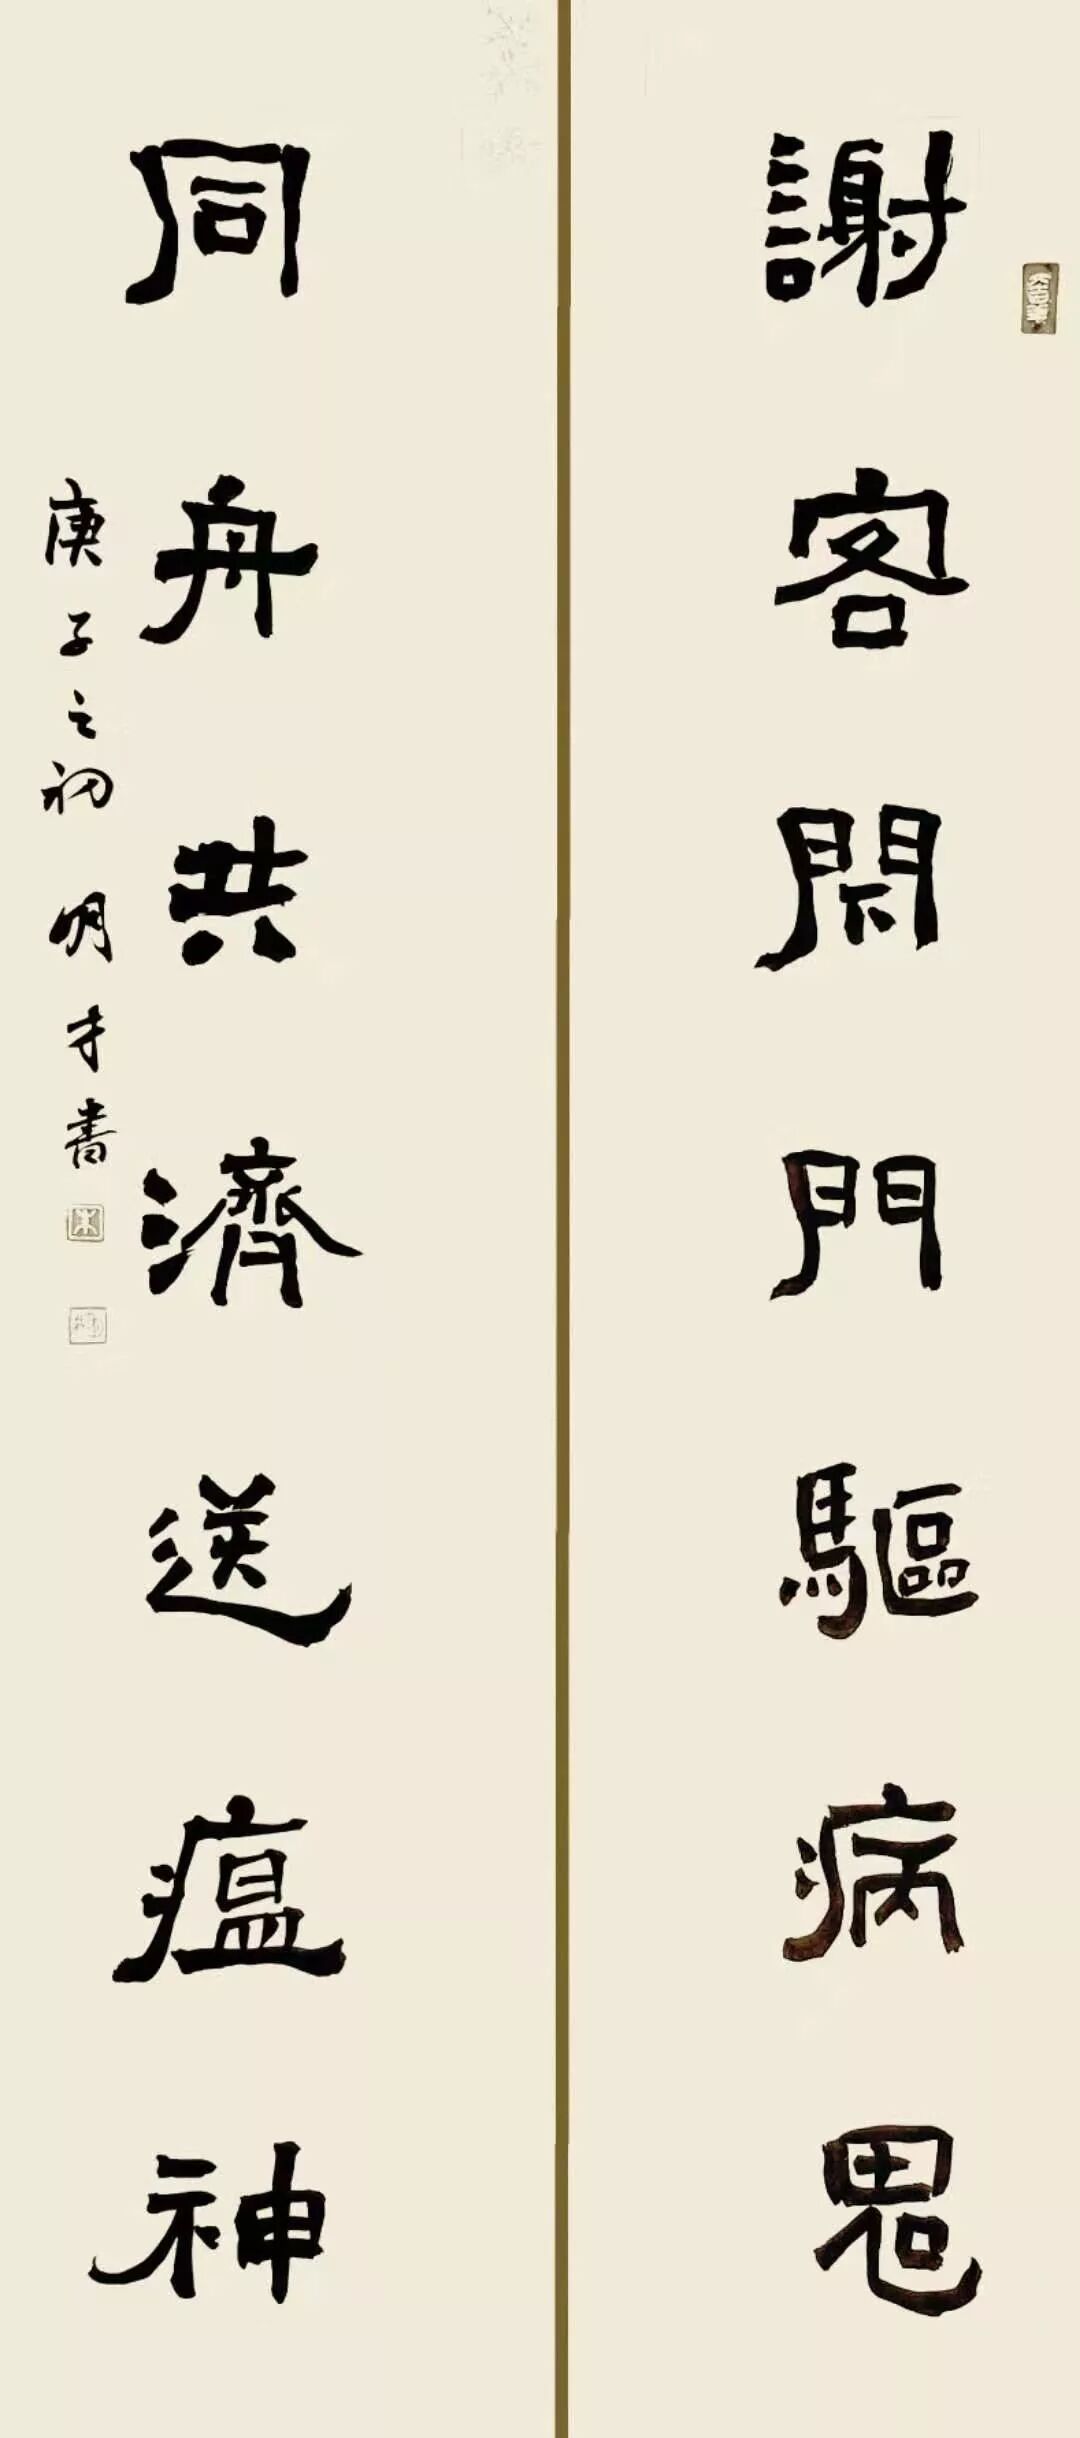 大吉羊
謝客閉門驅病鬼
同舟共濟送瘟神
庚子之初 明才書